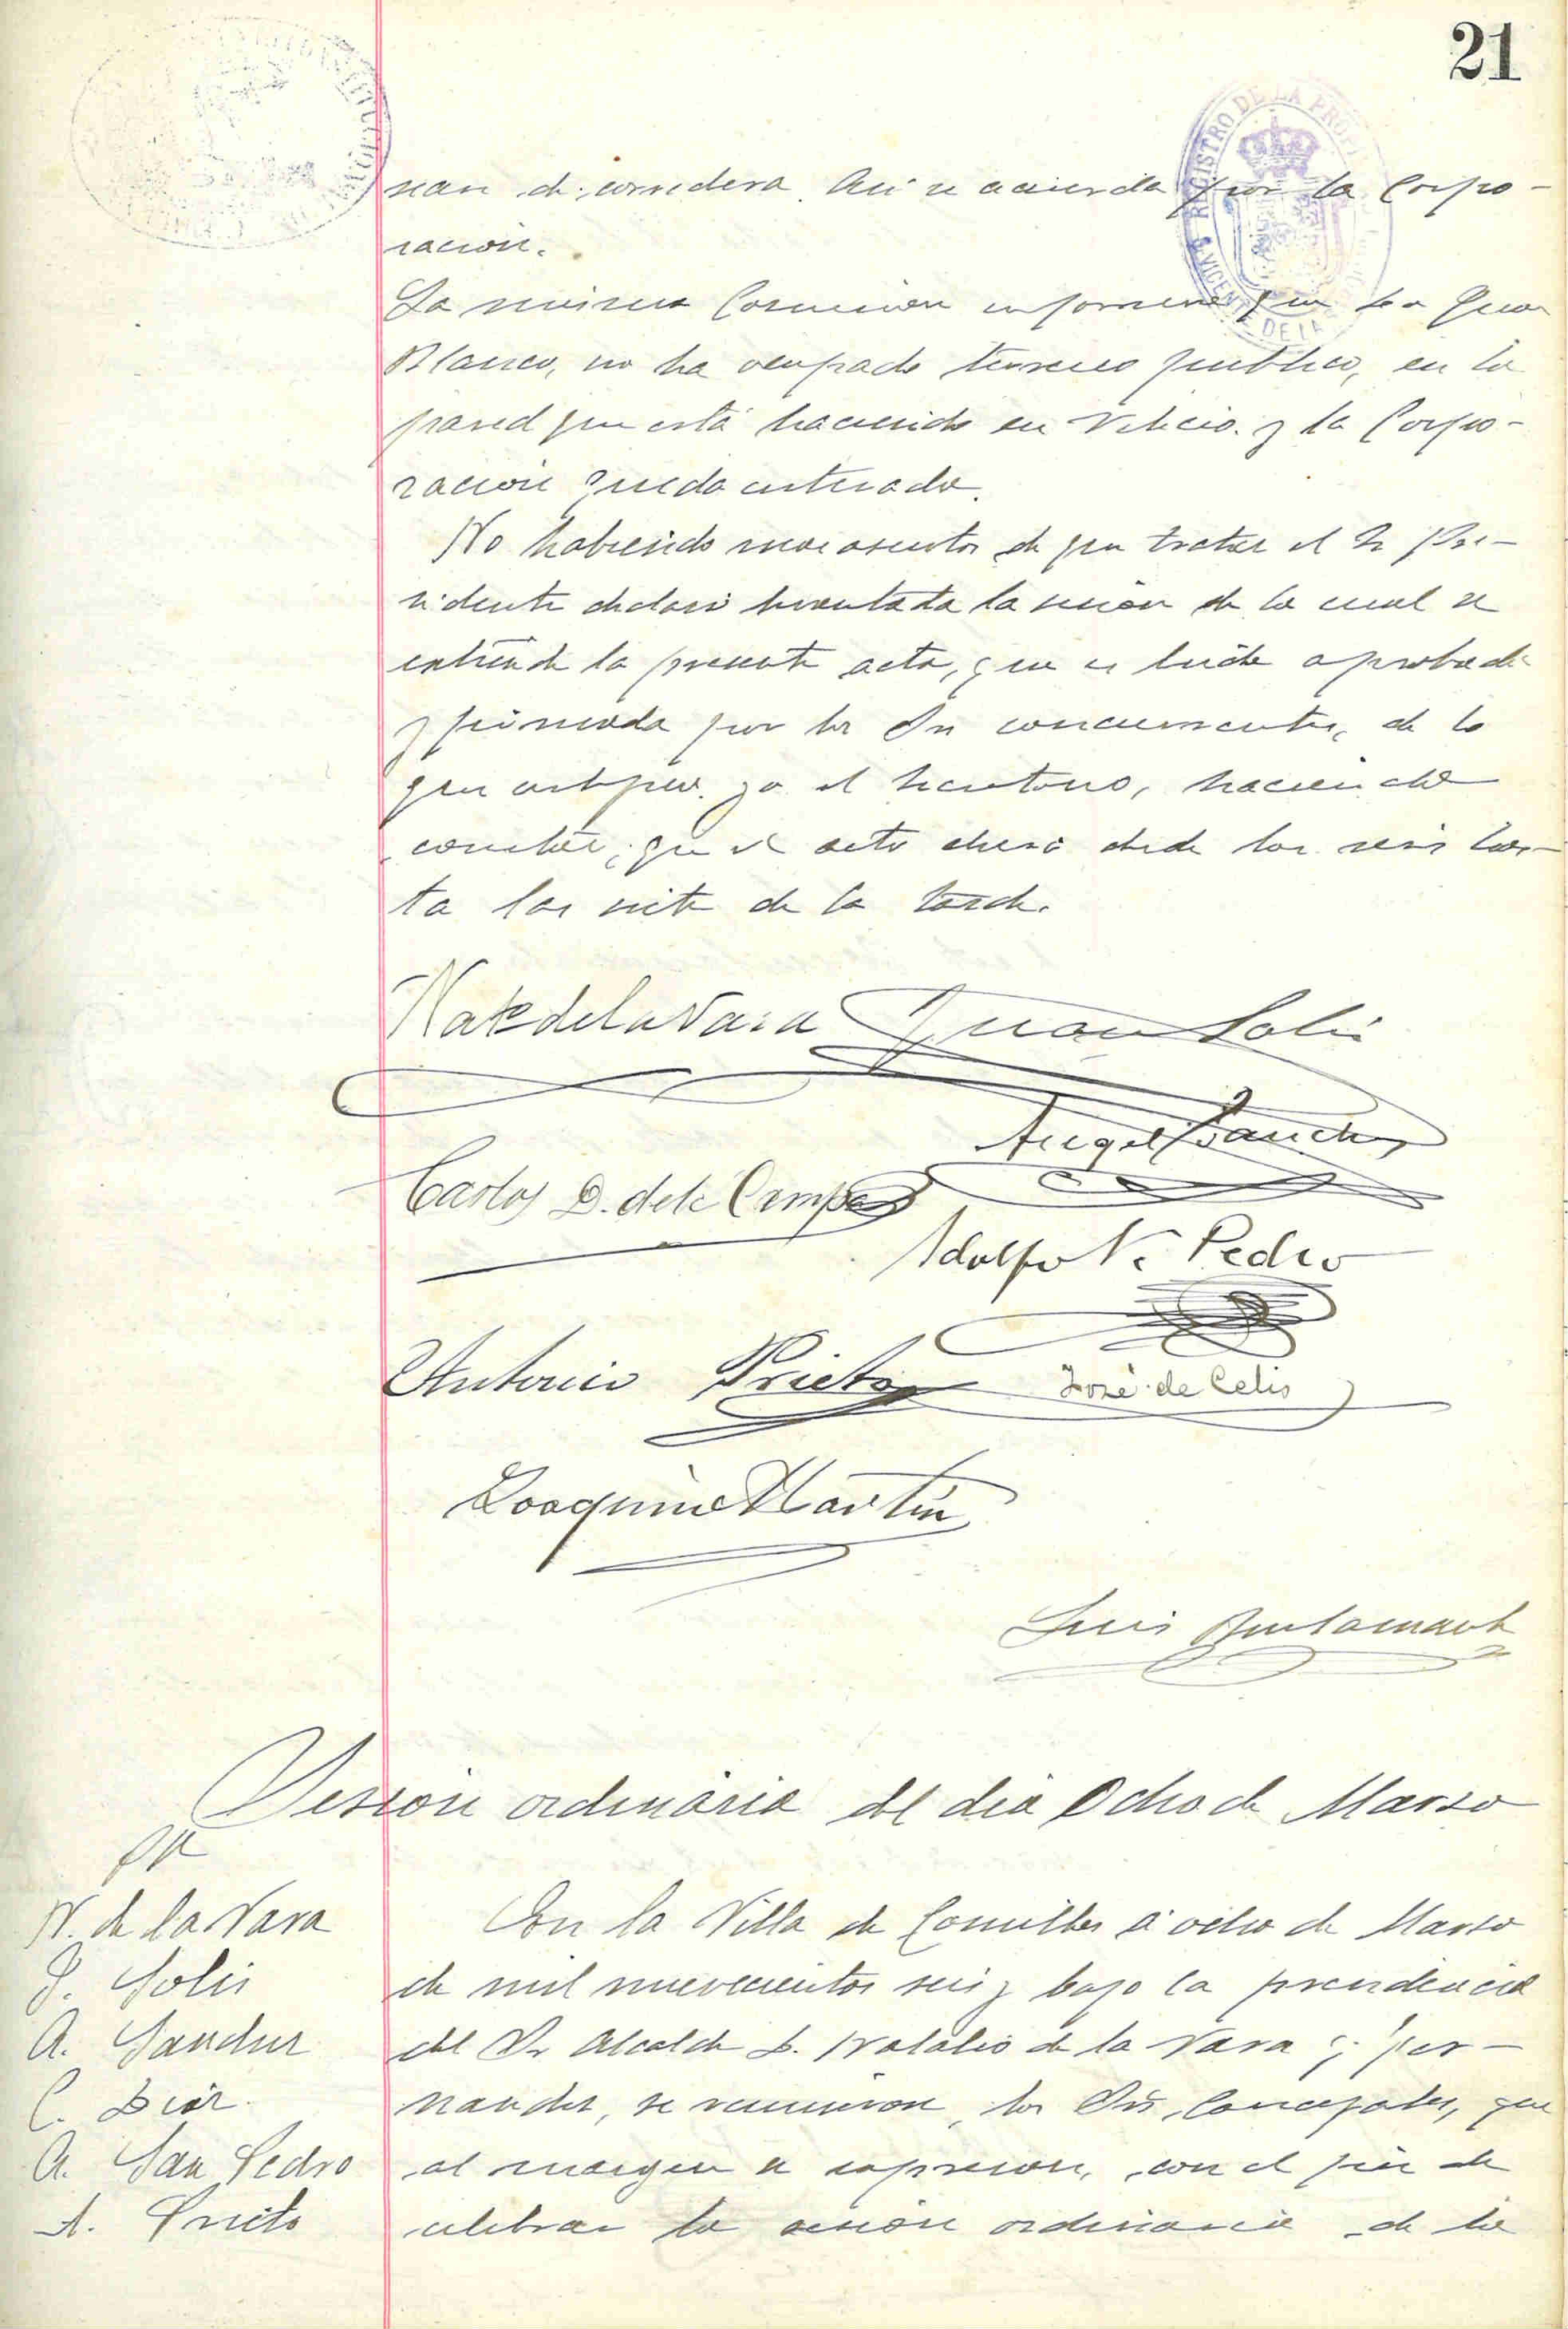 21
REGISTRO DE LA PROP
S. VICENTE DE LA
sean de corredera. Así se acuerda por la Corpo-
ración.
La misma Comisión informa que Juan
Blanco, no ha ocupado terreno publico, en la
pared que está haciendo en Velecio. y la Corpo-
ración queda enterada.
No habiendo mas asuntos de que tratar el Sr Pre-
sidente declaró levantada la sesion de la cual se
extiende la presente acta, que es leida aprobada
y firmada por los Srs concurrentes, de lo
que certifico. yo el Secretario, haciendo
constar, que el acto duró desde las seis has-
ta las siete de la tarde.
Nat. de la Vara Juan Solis
Angel Sanchez
Carlos D. de la Campa
Adolfo S. Pedro
Antonio Prieto José de Celis
Joaquin Martin
Luis Bustamante
Sesión ordinaria del dia Ocho de Marzo
N. de la Vara
J. Solis
A. Sanchez
C. Diaz.
A. San Pedro
A. Prieto
En la Villa de Comillas á ocho de Marzo
de mil nuevecientos seis y bajo la presidencia
del Sr Alcalde D. Natalio de la Vara y Fer-
nandez, se reunieron los Srs Concejales, que
al margen se expresan, con el fin de
celebrar la sesión ordinaria de la